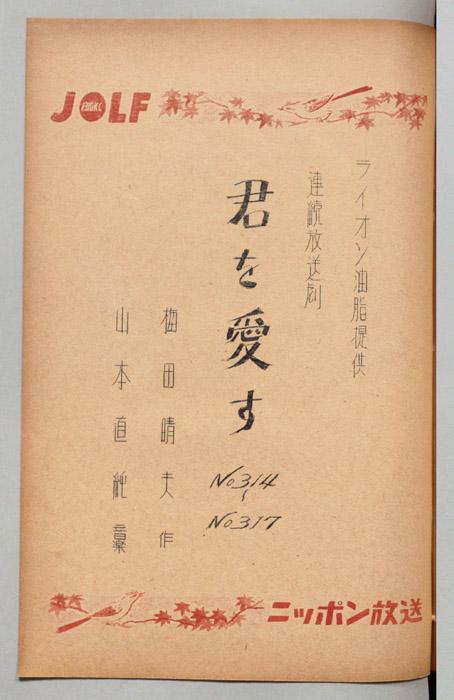 JOLF
ライオン油脂提供
連続放送劇
君を愛す
No314
～
No317
梅田晴夫 作
山本直純 音楽
ニッポン放送